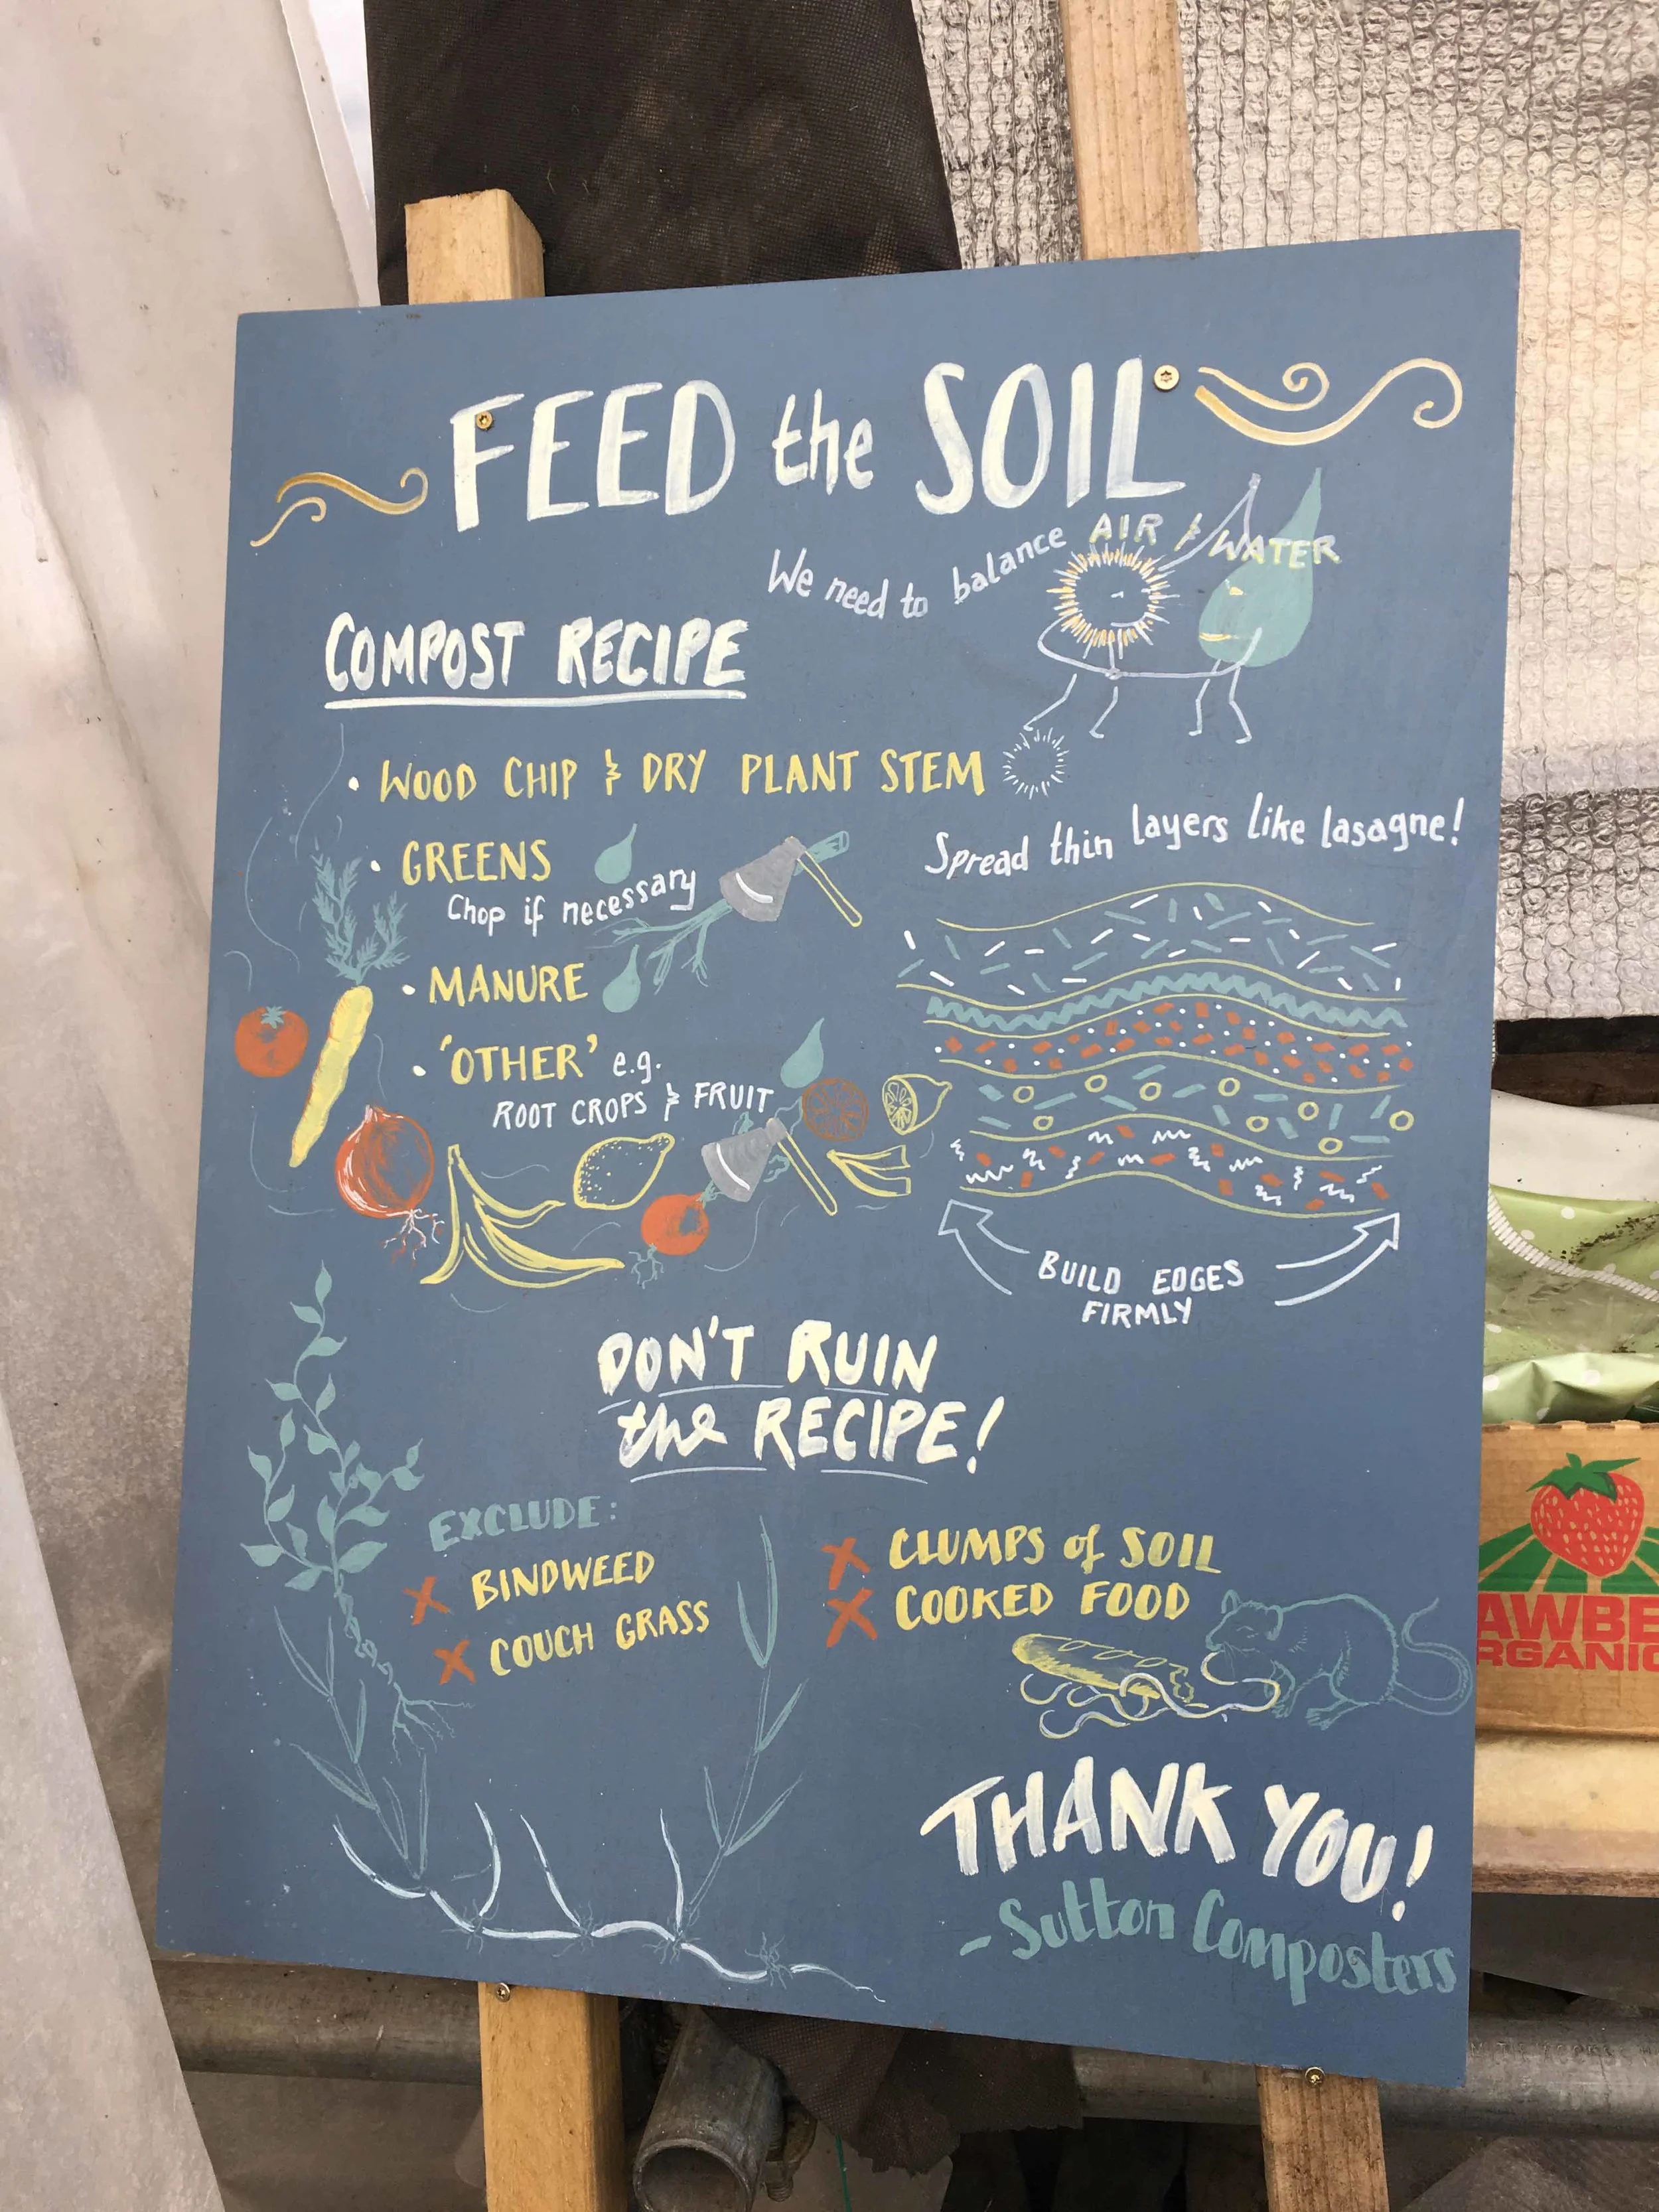 FEED the SOIL
We need to balance AIR & WATER
COMPOST RECIPE
• WOOD CHIP & DRY PLANT STEM
• GREENS
Chop if necessary
• MANURE
• 'OTHER' e.g.
ROOT CROPS & FRUIT
Spread thin layers like lasagne!
BUILD EDGES
FIRMLY
DON'T RUIN
the RECIPE!
EXCLUDE:
X BINDWEED
X COUCH GRASS
X CLUMPS of SOIL
X COOKED FOOD
THANK YOU!
- Sutton Composters
AWBE
RGANIC